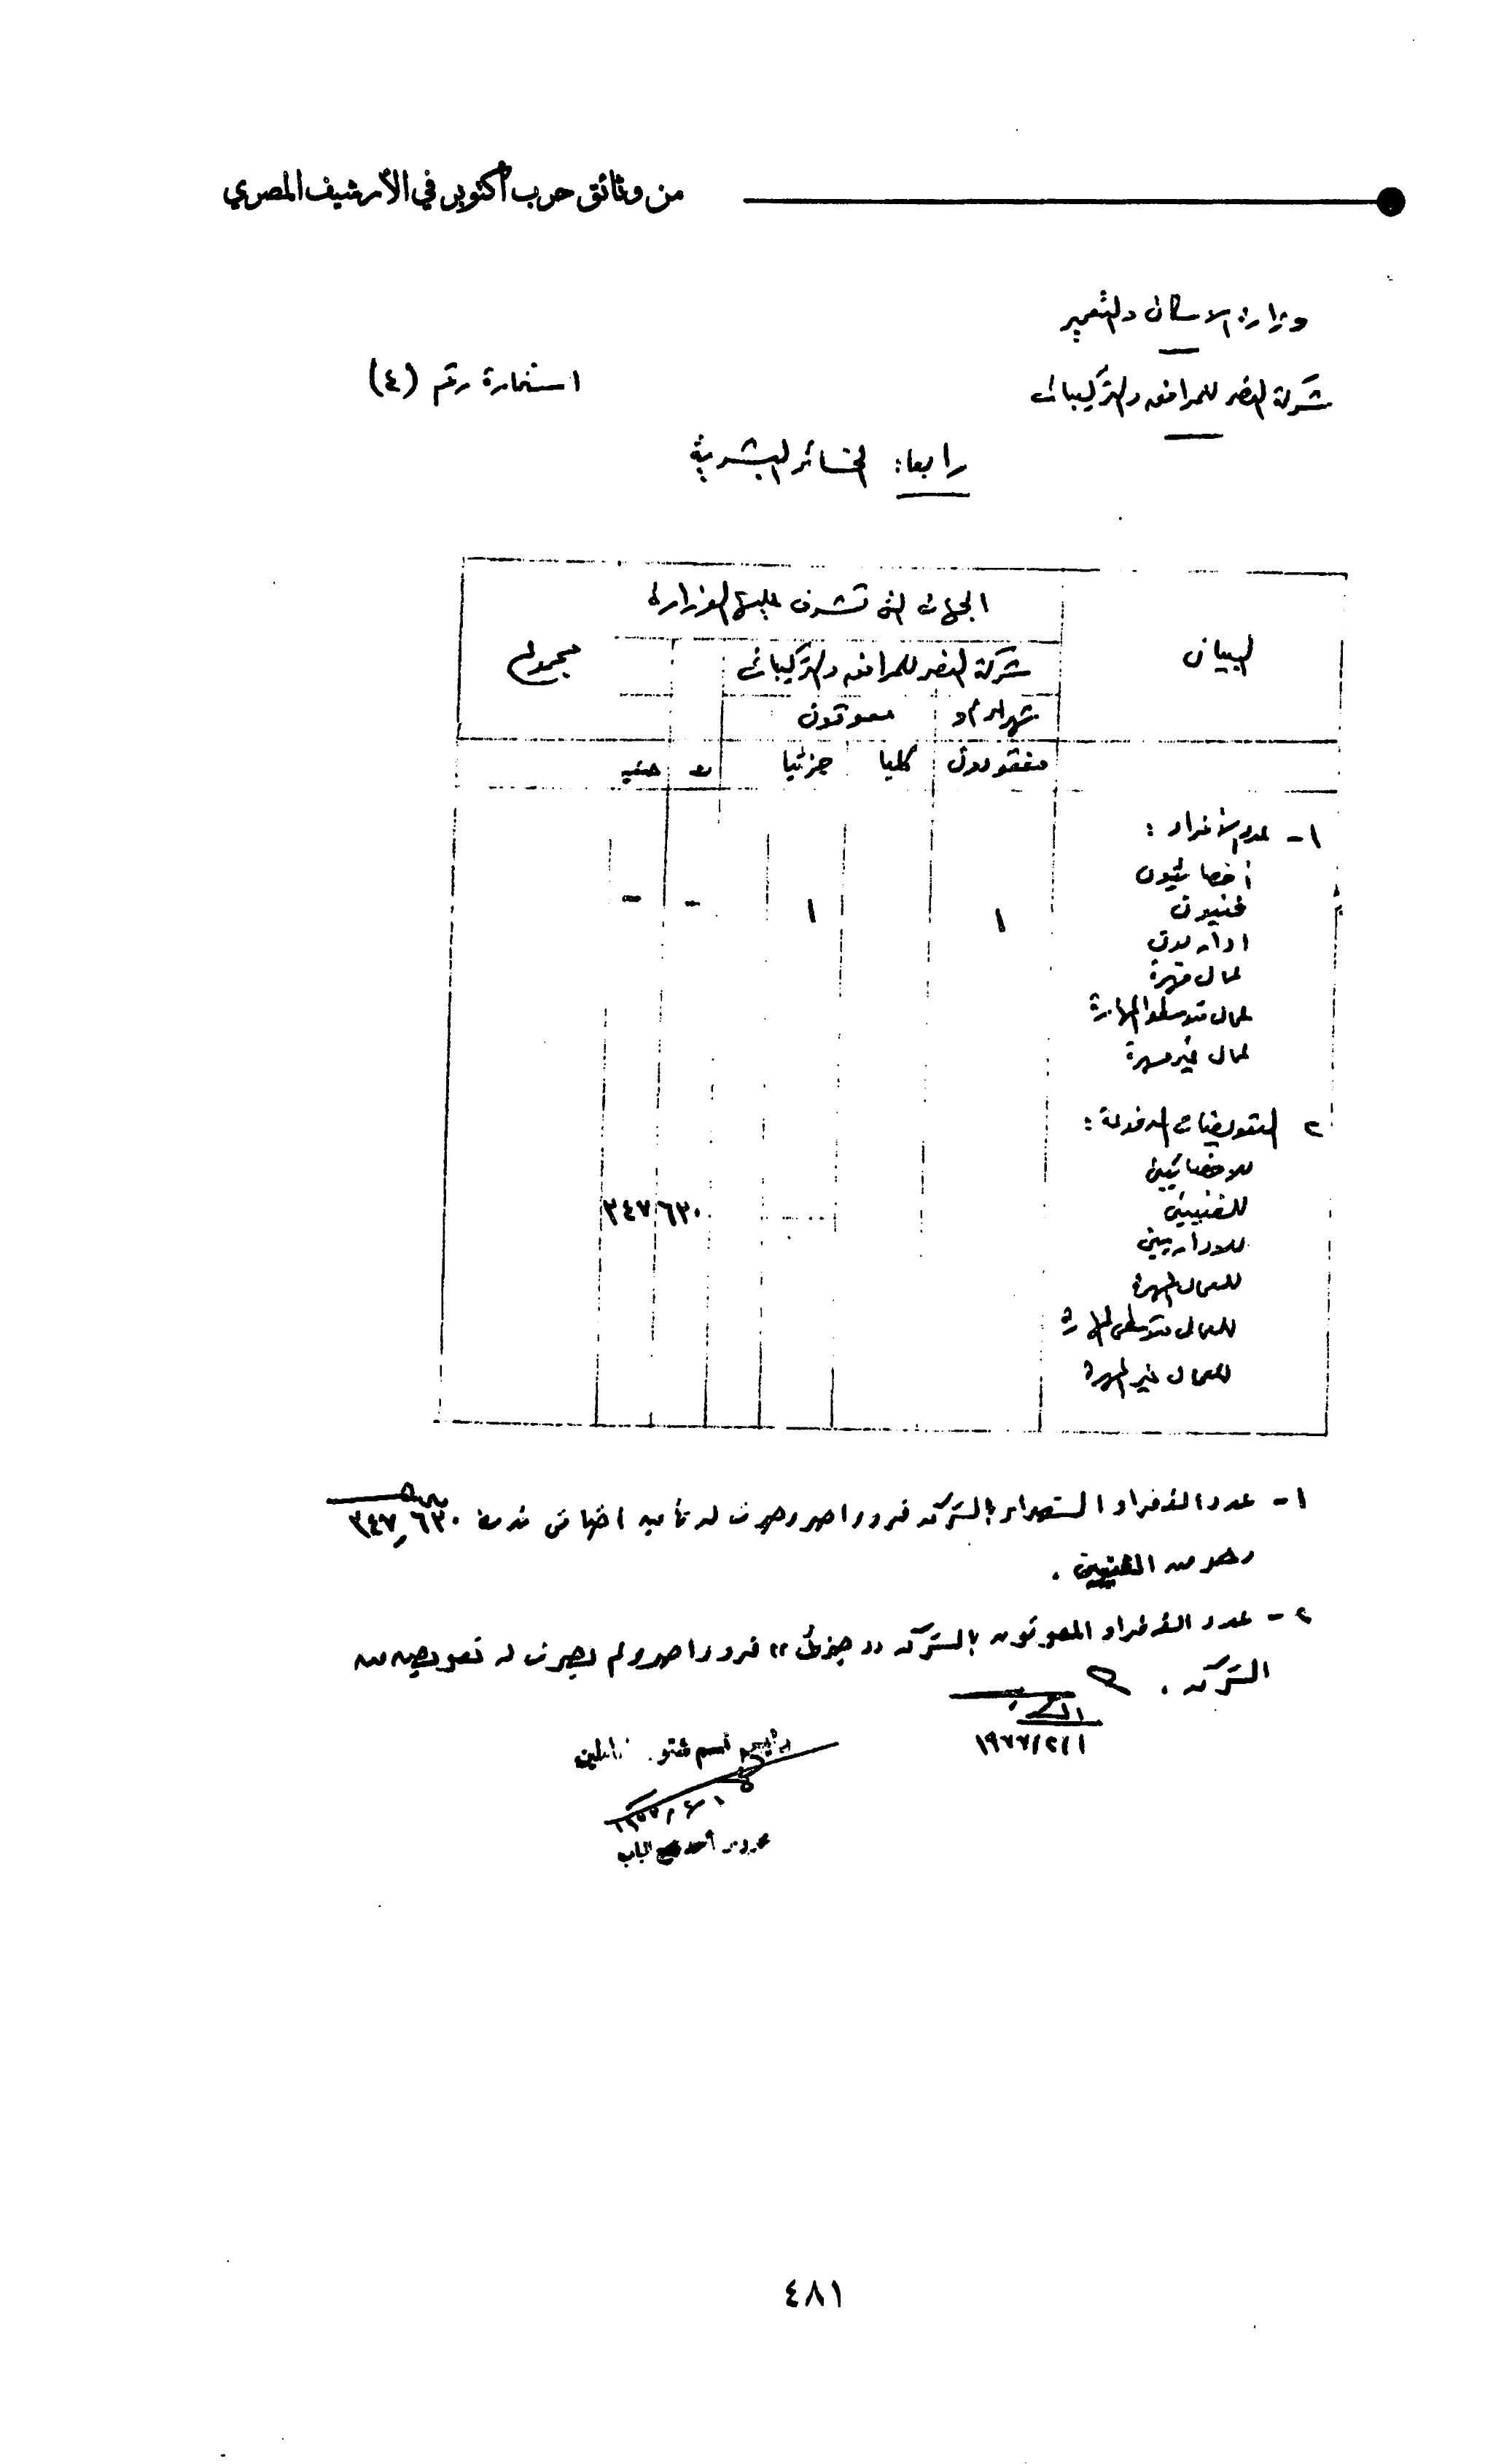 من وثائق حرب أكتوبر في الأرشيف المصري
وزارة الاسكان والتعمير
شركة النصر للمرافق والتركيبات
استمارة رقم (٤)
رابعا: الخسائر البشرية
البيان
الجهات التى تشرف عليها الوزارة
مجموع
شركة النصر للمرافق والتركيبات
شهداء أو
معوقون
مفقودون
كليا
جزئيا
جنيه
١- عدد الأفراد :
أخصائيون
فنيون
١
١
-
-
اداريون
عمال مهرة
عمال متوسطوا المهارة
عمال غير مهرة
٢ التعويضات المدفوعة :
للاخصائيين
للفنيين
٦٣٠
٣٤٧
للاداريين
للعمال المهرة
للعمال متوسطى المهارة
للعمال غير المهرة
١- عدد الأفراد الشهداء بالشركة فرد واحد وصرف له تأمين اضافى قدره ٣٤٧,٦٣٠
وهو من الفنيين .
٢- عدد الأفراد المعوقون بالشركة " جزئى " فرد واحد ولم يصرف له تعويض من
الشركة .
١٩٧٧/٢/١
رئيس قسم شئون العاملين
أحمد فتح الباب
٤٨١